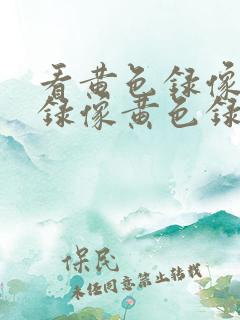 看黄色録像
録像黄色録
保民
未经同意禁止转载